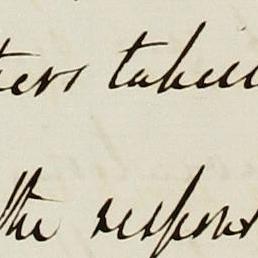 ters taken
the respons